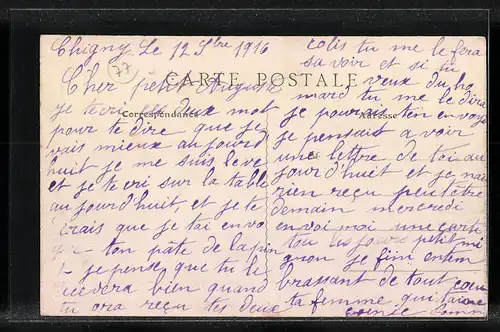 Chigny Le 12 Sbre 1916
77
CARTE POSTALE
Correspondance
Adresse
Cher petit August
je tecri ces deux mot
pour te dire que je
vais mieux aujourd
huit je me suis leve
et je tecri sur la table
aujourd'huit, et je te
dirais que je tai envo
ton pâte de lapin
je pense que tu le
recevera bien quand
tu ora reçu tes deux
colis tu me le fera
savoir et si tu
veux du ho
mard tu me le dira
je pourais ten envoye
je pensait a voir
une lettre de toi au
jour d'huit et je nai
rien reçu peut être
demain mercredi
envoi moi une carte
tou les jours petit mi
gnon je fini en tem
brassant de tout cœur
ta femme qui taime